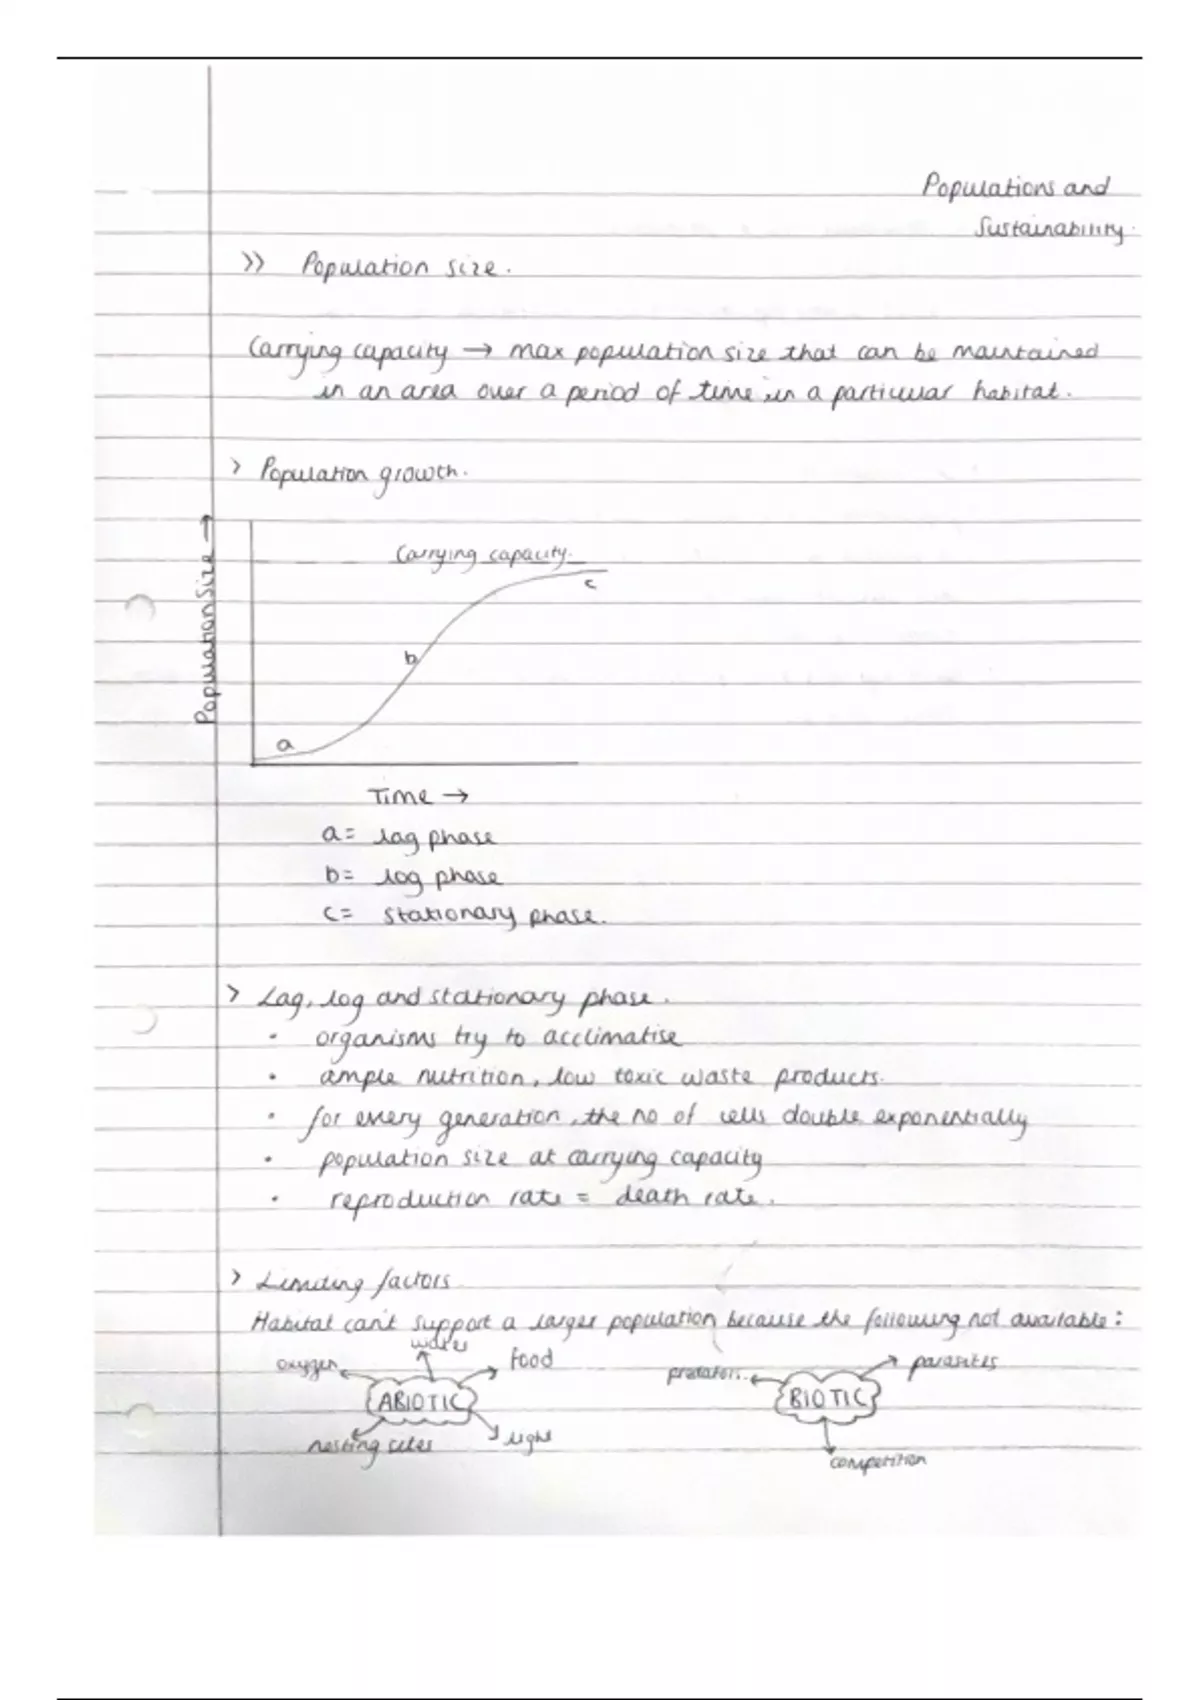 Populations and
Sustainability.
>> Population size.
Carrying capacity → max population size that can be maintained
in an area over a period of time in a particular habitat.
> Population growth.
Population Size →
Carrying capacity.
c
b
a
Time →
a = lag phase
b = log phase
c = stationary phase.
> Lag, log and stationary phase.
• organisms try to acclimatise
• ample nutrition, low toxic waste products.
• for every generation, the no of cells double exponentially
• population size at carrying capacity
• reproduction rate = death rate.
> Limiting factors
Habitat can't support a larger population because the following not available:
water
oxygen
food
predators.
parasites
ABIOTIC
BIOTIC
nesting sites
light
competition